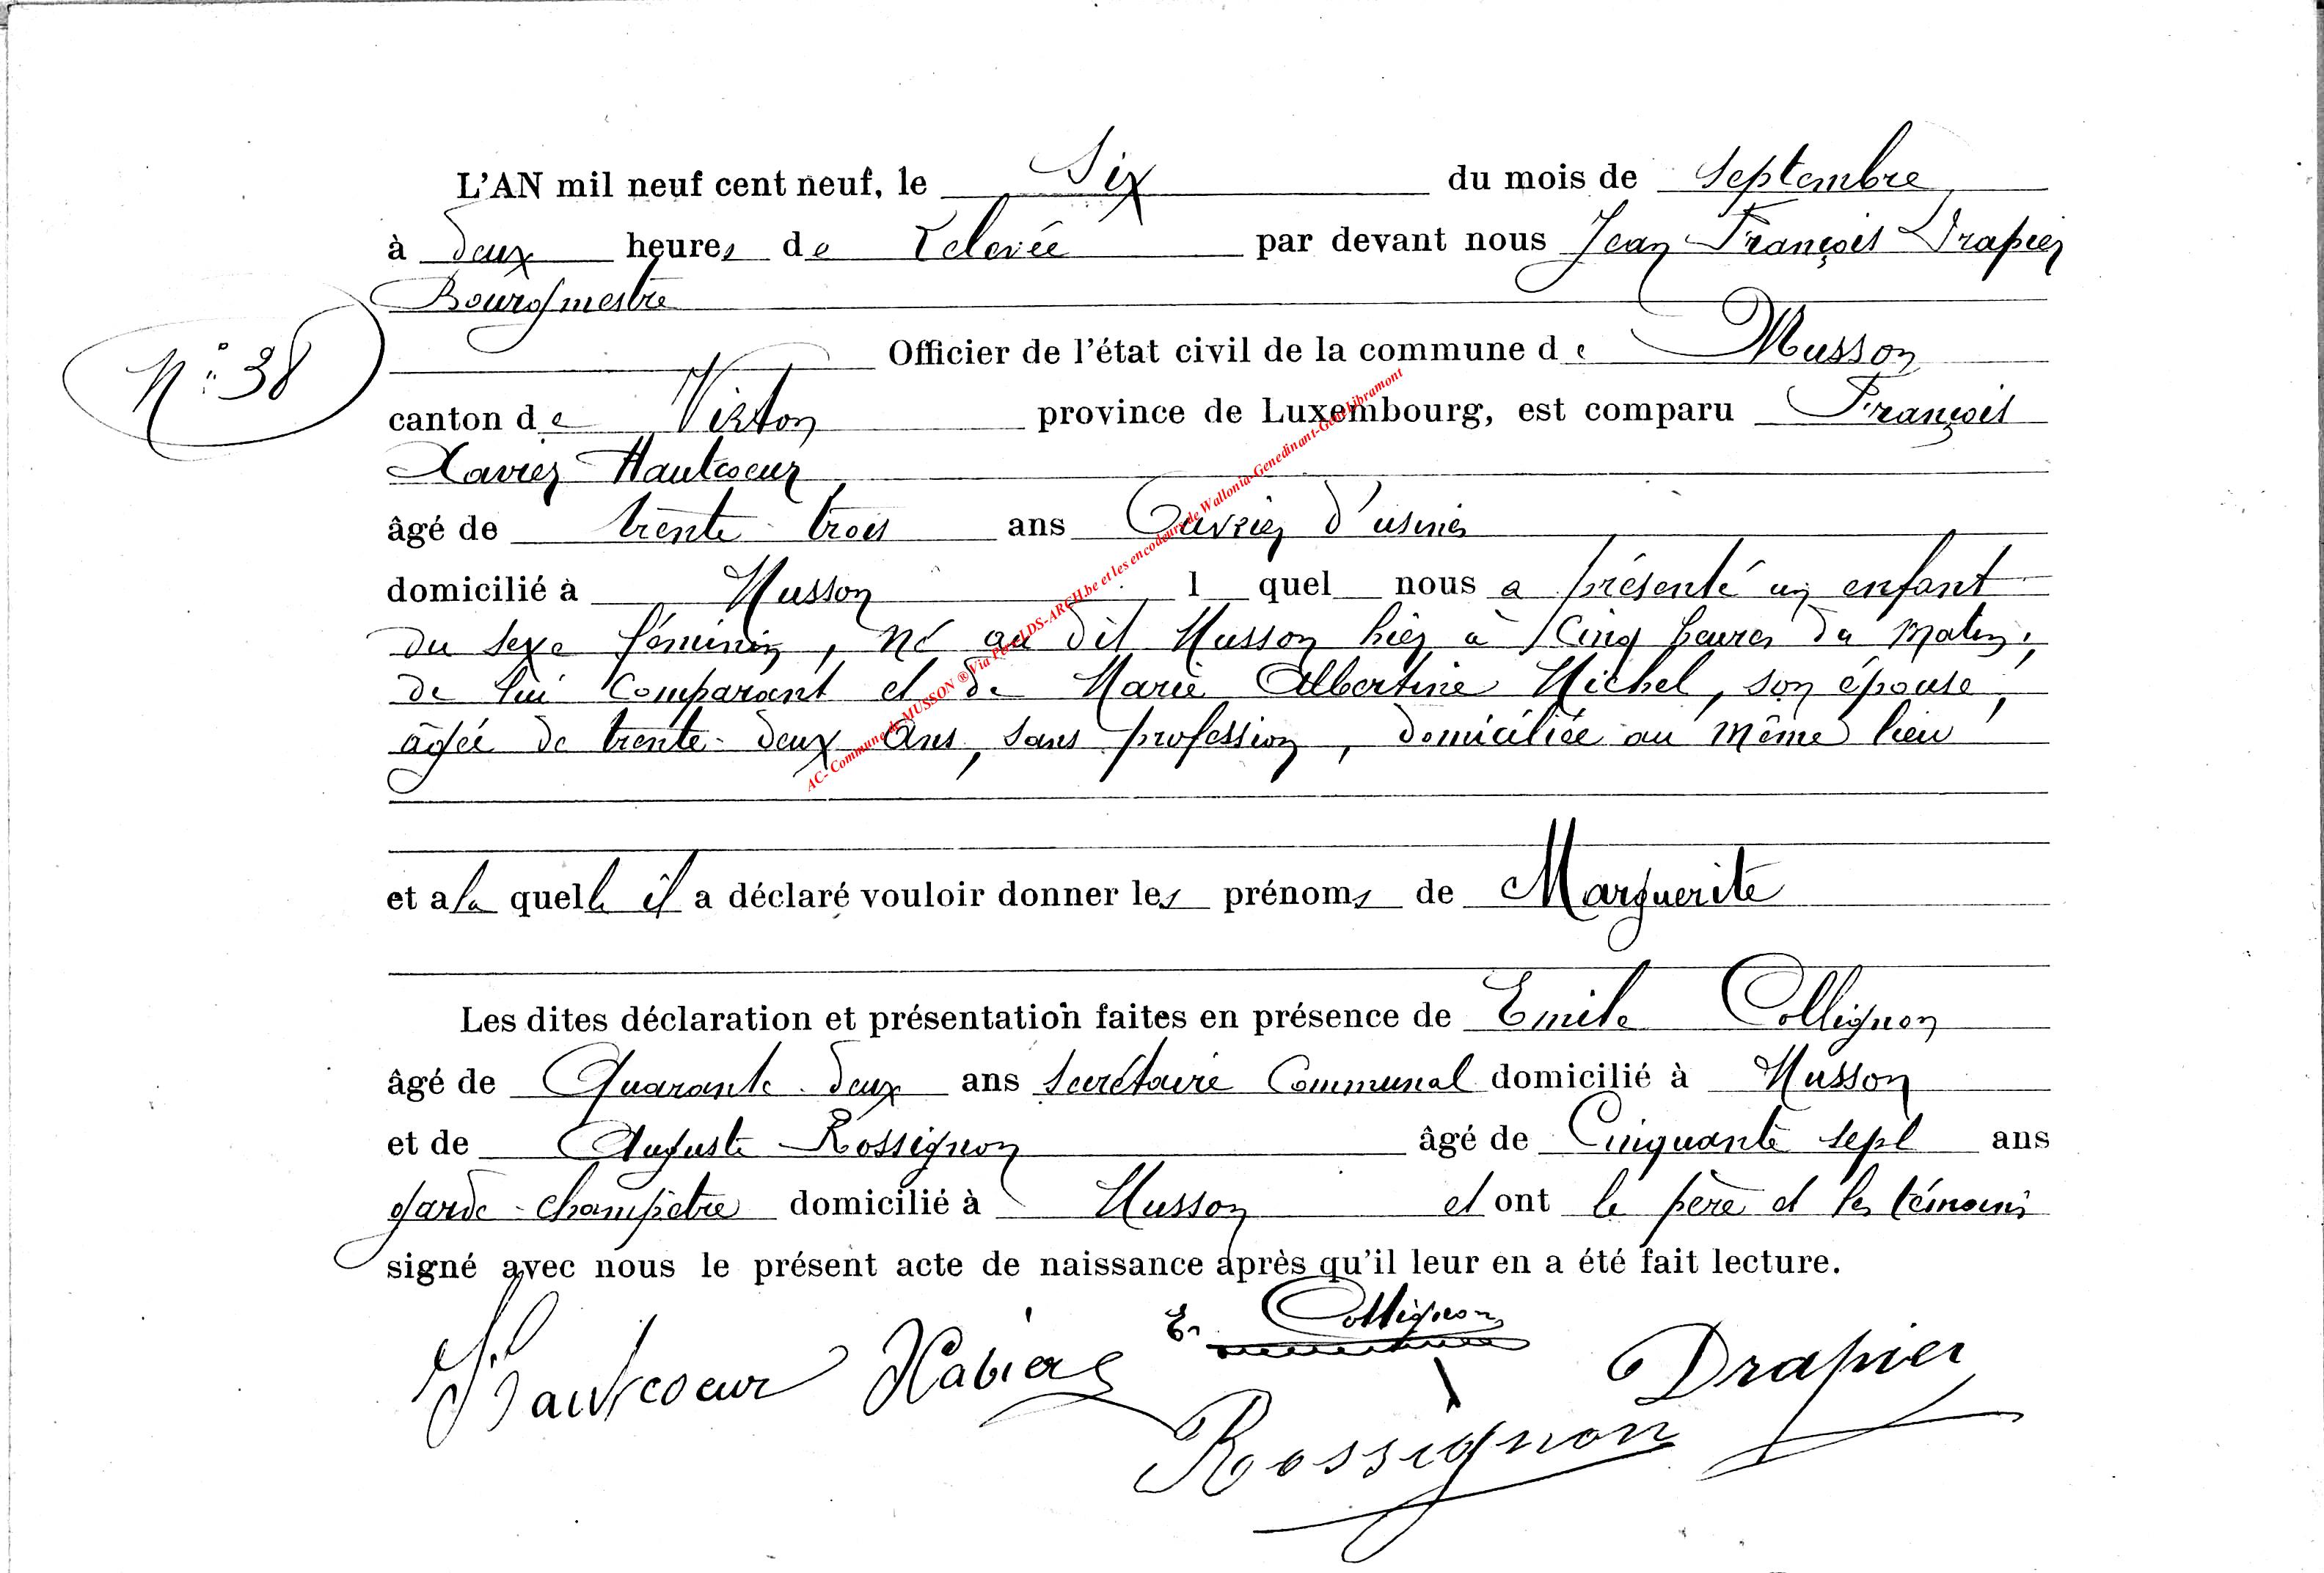 L'AN mil neuf cent neuf, le Six du mois de Septembre
à deux heures de relevée par devant nous Jean François Drapier
Bourgmestre
N° 38
Officier de l'état civil de la commune de Musson
canton de Virton province de Luxembourg, est comparu François
Xavier Hautcoeur
âgé de trente trois ans Ouvrier d'usines
domicilié à Musson l quel nous a présenté un enfant
du sexe féminin, né au dit Musson hier à Cinq heures du matin,
de lui Comparant et de Marie Albertine Michel, son épouse,
âgée de trente-deux Ans, sans profession, domiciliée au même lieu
et a la quelle il a déclaré vouloir donner les prénoms de Marguerite
Les dites déclaration et présentation faites en présence de Emile Collignon
âgé de Quarante-deux ans Secrétaire Communal domicilié à Musson
et de Auguste Rossignon âgé de Cinquante sept ans
garde-champêtre domicilié à Musson et ont le père et les témoins
signé avec nous le présent acte de naissance après qu'il leur en a été fait lecture.
Hautcoeur Xabier Em Collignon Drapier
Rossignon
AC- Commune de MUSSON ® Via Par LDS-ARCH.be et les encodeurs de Wallonia-Genedinant-Gene-Libramont